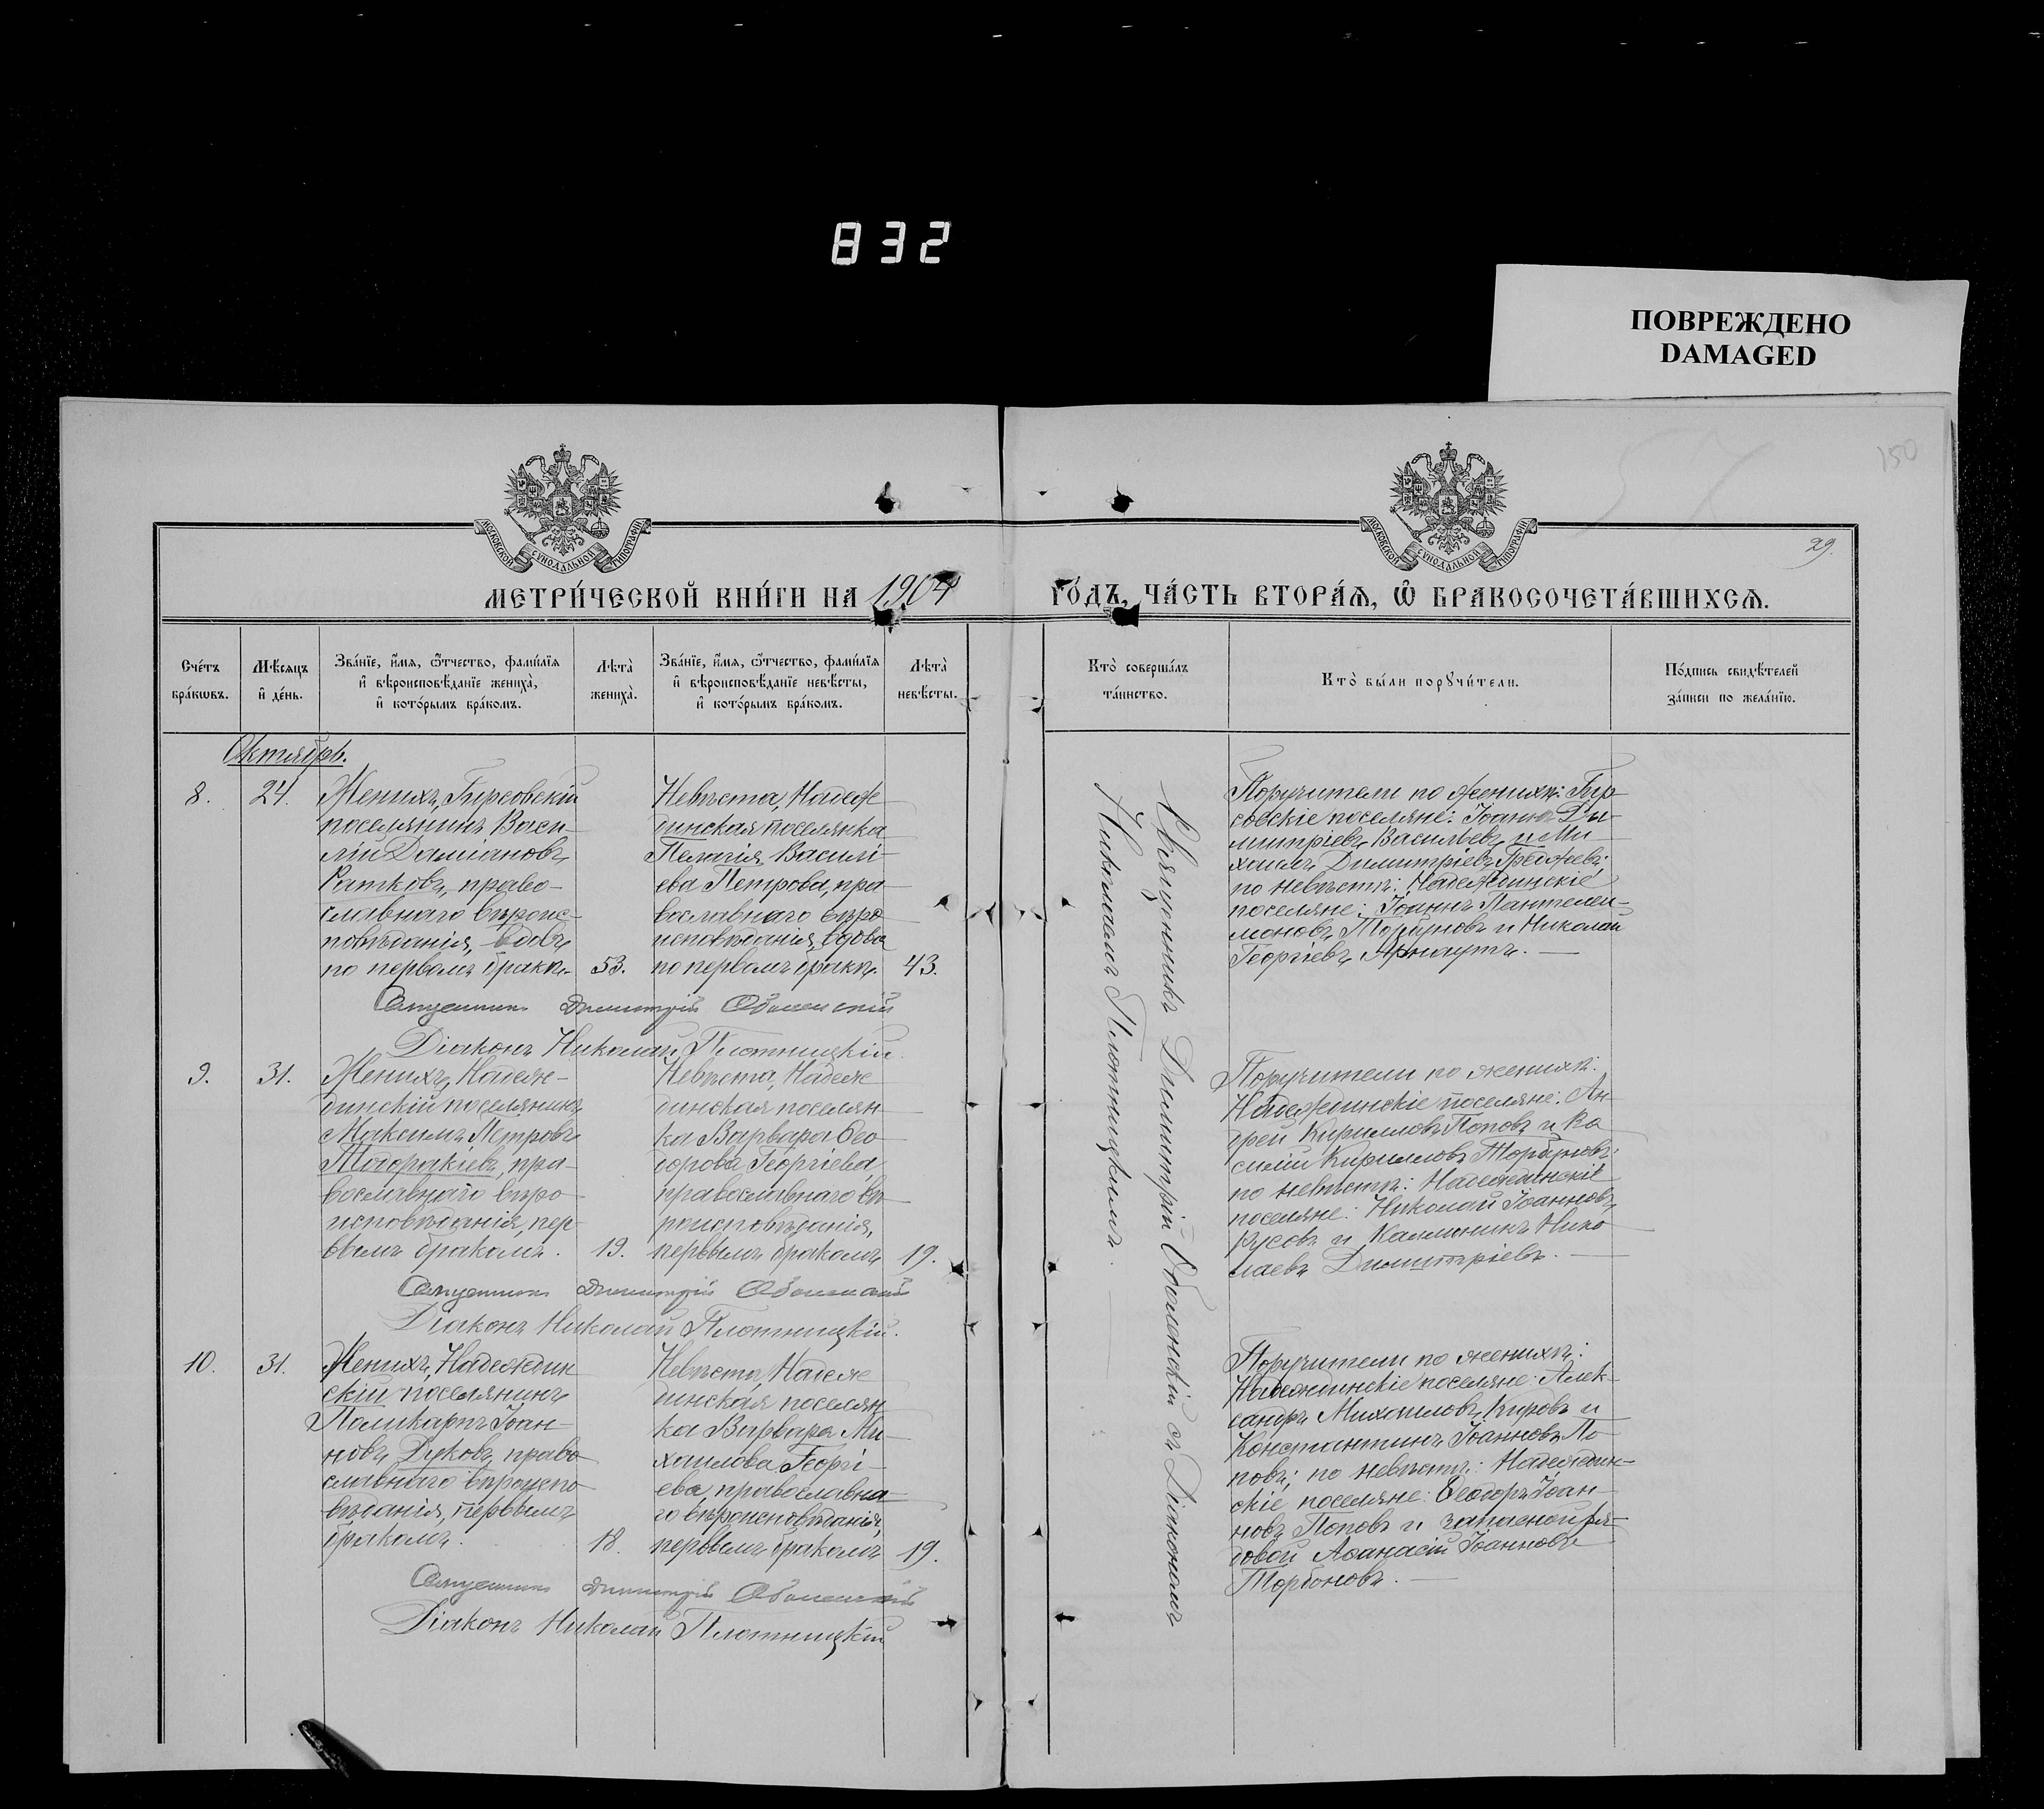 832
ПОВРЕЖДЕНО
DAMAGED
150
29.
МОСКОВСКОЙ СѴНОДАЛЬНОЙ ТИПОГРАФІИ
МОСКОВСКОЙ СѴНОДАЛЬНОЙ ТИПОГРАФІИ
МЕТРИ́ЧЕСКОЙ КНИ́ГИ НА 1904
ГО́ДЪ, ЧА́СТЬ ВТОРА́Ѧ, Ѽ БРАКОСОЧЕТА́ВШИХСѦ.
Сче́тъ
бра́кѡвъ.
Мѣ́сяцъ
и҆ де́нь.
Зва́нїе, и҆́мя, ѻ҆́тчество, фами́лїя
и҆ вѣроисповѣ́данїе жениха̀,
и҆ кото́рымъ бра́комъ.
Лѣта̀
жениха̀.
Зва́нїе, и҆́мя, ѻ҆́тчество, фами́лїя
и҆ вѣроисповѣ́данїе невѣ́сты,
и҆ кото́рымъ бра́комъ.
Лѣта̀
невѣ́сты.
Кто̀ соверша́лъ
та́инство.
Кто̀ бы́ли порꙋчи́тели.
По́дпись свидѣ́телей
за́писи по жела́нїю.
Октябрь.
8.
24.
Женихъ, Гирсовскій
поселянинъ Васи-
лій Даміановъ
Ратковъ, право-
славнаго вѣроис-
повѣданія, вдовъ
по первомъ бракѣ.
53.
Невѣста, Надеж
динская поселянка
Пелагія Василі-
ева Петрова, пра
вославнаго вѣро
исповѣданія, вдова
по первомъ бракѣ.
43.
Священникъ Димитрій Оболенскій съ Діакономъ
Николаемъ Плотницкимъ.
Поручители по женихѣ: Гир
совскіе поселяне: Іоаннъ Ди-
митріевъ Васильевъ и Ми
хаилъ Димитріевъ
по невѣстѣ: Надеждинскіе
поселяне: Іоаннъ Пантелеи-
моновъ и Николай
Георгіевъ Арнаутъ.
Священникъ Димитрій Оболенскій
Діаконъ Николай Плотницкій.
9.
31.
Женихъ, Надеж-
динскій поселянинъ
Максимъ Петровъ
Тодоракіевъ, пра-
вославнаго вѣро
исповѣданія, пер-
вымъ бракомъ.
19.
Невѣста, Надеж
динская поселян-
ка Варвара Ѳео
дорова Георгіева,
православнаго вѣ
роисповѣданія,
первымъ бракомъ
19.
Поручители по женихѣ:
Надеждинскіе поселяне: Ан-
дрей Кирилловъ Поповъ и Ва
силій Кирилловъ
по невѣстѣ: Надеждинскіе
поселяне: Николай Іоанновъ
Русовъ и Каллиникъ Нико
лаевъ Димитріевъ.
Священникъ Димитрій Оболенскій
Діаконъ Николай Плотницкій.
10.
31.
Женихъ, Надеждин
скій поселянинъ
Поликарпъ Іоан-
новъ Дуковъ, право
славнаго вѣроиспо
вѣданія, первымъ
бракомъ.
18.
Невѣста, Надеж
динская поселян
ка Варвара Ми-
хаилова Георгі-
ева, православна-
го вѣроисповѣданія,
первымъ бракомъ
19.
Поручители по женихѣ:
Надеждинскіе поселяне: Алек-
сандръ Михаиловъ Кировъ и
Константинъ Іоанновъ По
повъ; по невѣстѣ: Надеждин-
скіе поселяне: Ѳеодоръ Іоан-
новъ Поповъ и запасной ря-
довой Аѳанасій Іоанновъ
Торбоновъ.
Священникъ Димитрій Оболенскій
Діаконъ Николай Плотницкій